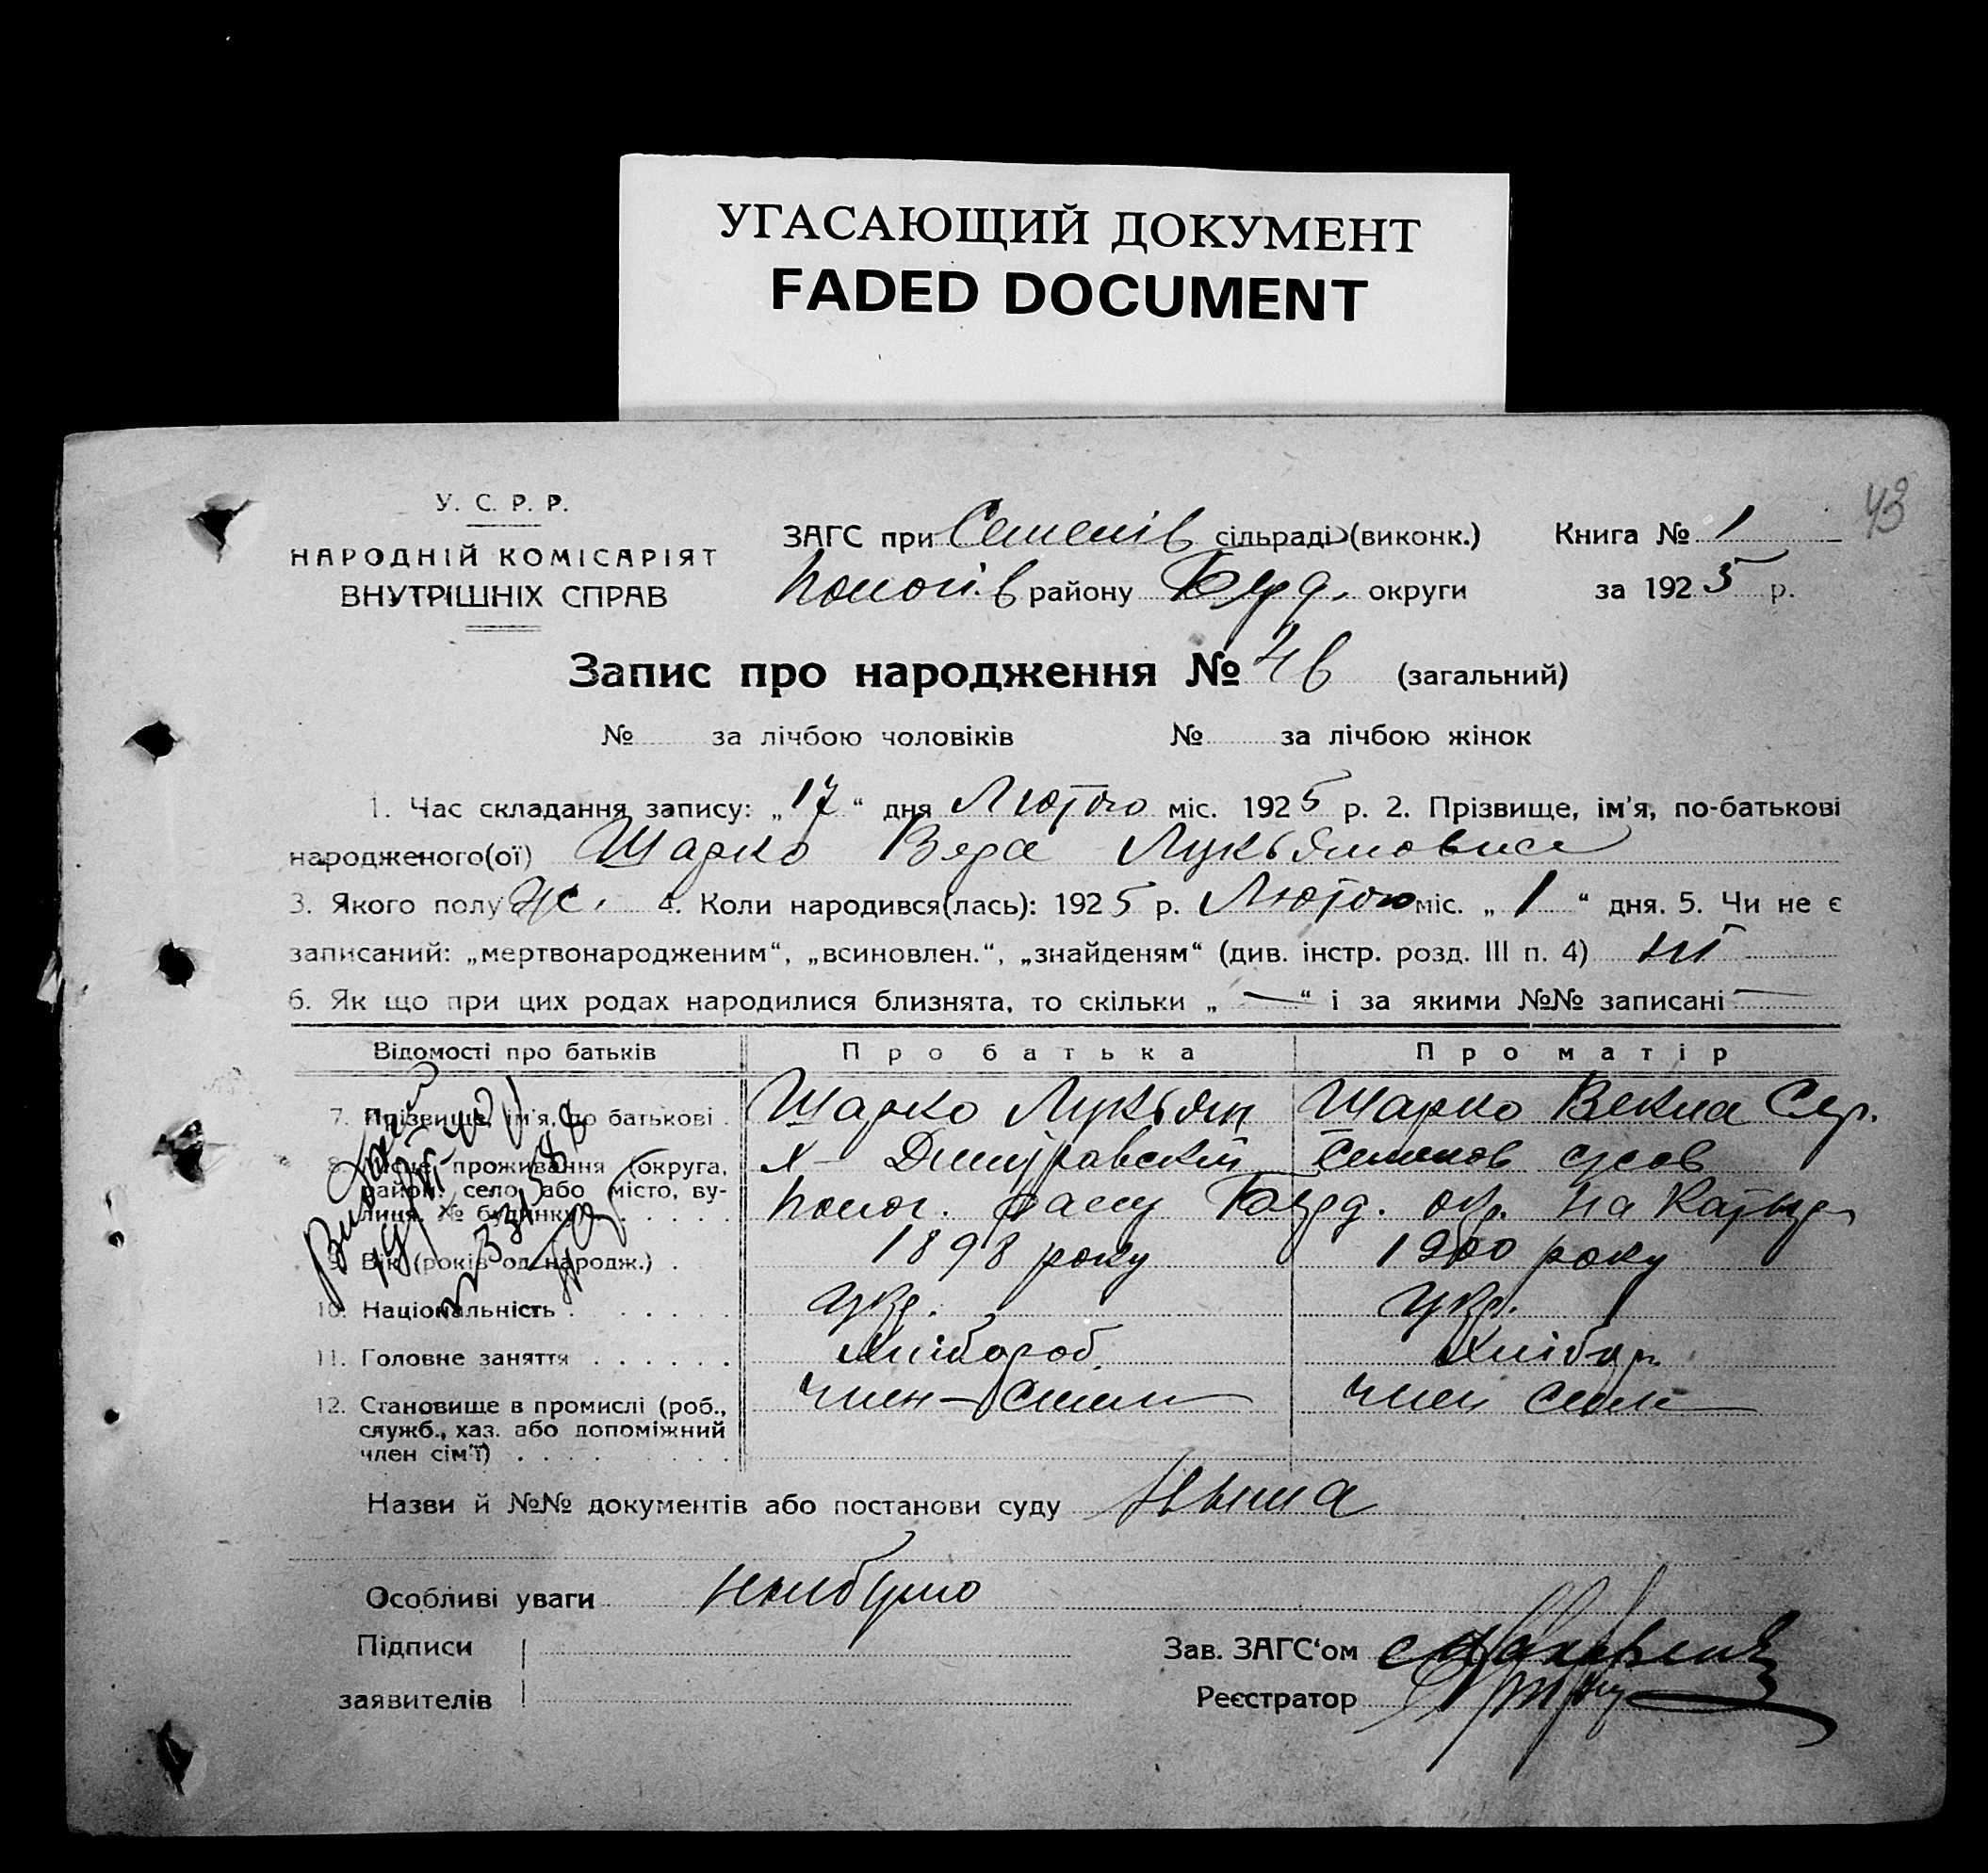 УГАСАЮЩИЙ ДОКУМЕНТ
FADED DOCUMENT
43
У. С. Р. Р.
НАРОДНІЙ КОМІСАРІЯТ
ВНУТРІШНІХ СПРАВ
ЗАГС при Семенів сільраді (виконк.) Книга № 1
Пологів району Берд. округи за 1925 р.
Запис про народження № 46 (загальний)
№ за лічбою чоловіків № за лічбою жінок
1. Час складання запису: „17“ дня Лютого міс. 1925 р. 2. Прізвище, ім'я, по-батькові
народженого(ої) Шарко Вера Лукьяновна
3. Якого полу ж. 4. Коли народився(лась): 1925 р. Лютого міс. „1“ дня. 5. Чи не є
записаний: „мертвонародженим“, „всиновлен.“, „знайденям“ (див. інстр. розд. III п. 4) ні
6. Як що при цих родах народилися близнята, то скільки „—“ і за якими №№ записані —
Відомості про батьків Про батька Про матір
7. Прізвище, ім'я, по батькові . Шарко Лукьян Шарко Векла Сер.
8. Місце проживання (округа, х Семенов
район, село або місто, ву-
лиця, № будинку) . . . . . Полог. Берд. окр.
9. Вік (років од народж.) . 1898 року 1900 року
10. Національність . . . . . Укр. Укр.
11. Головне заняття . . . . . . Хлібороб. Хлібор.
12. Становище в промислі (роб., член — семьи член семьи
служб., хаз. або допоміжний
член сім'ї) . . . . . . . .
Назви й №№ документів або постанови суду Ньма
Особливі уваги небуло
Підписи
Зав. ЗАГС'ом
заявителів
Реєстратор